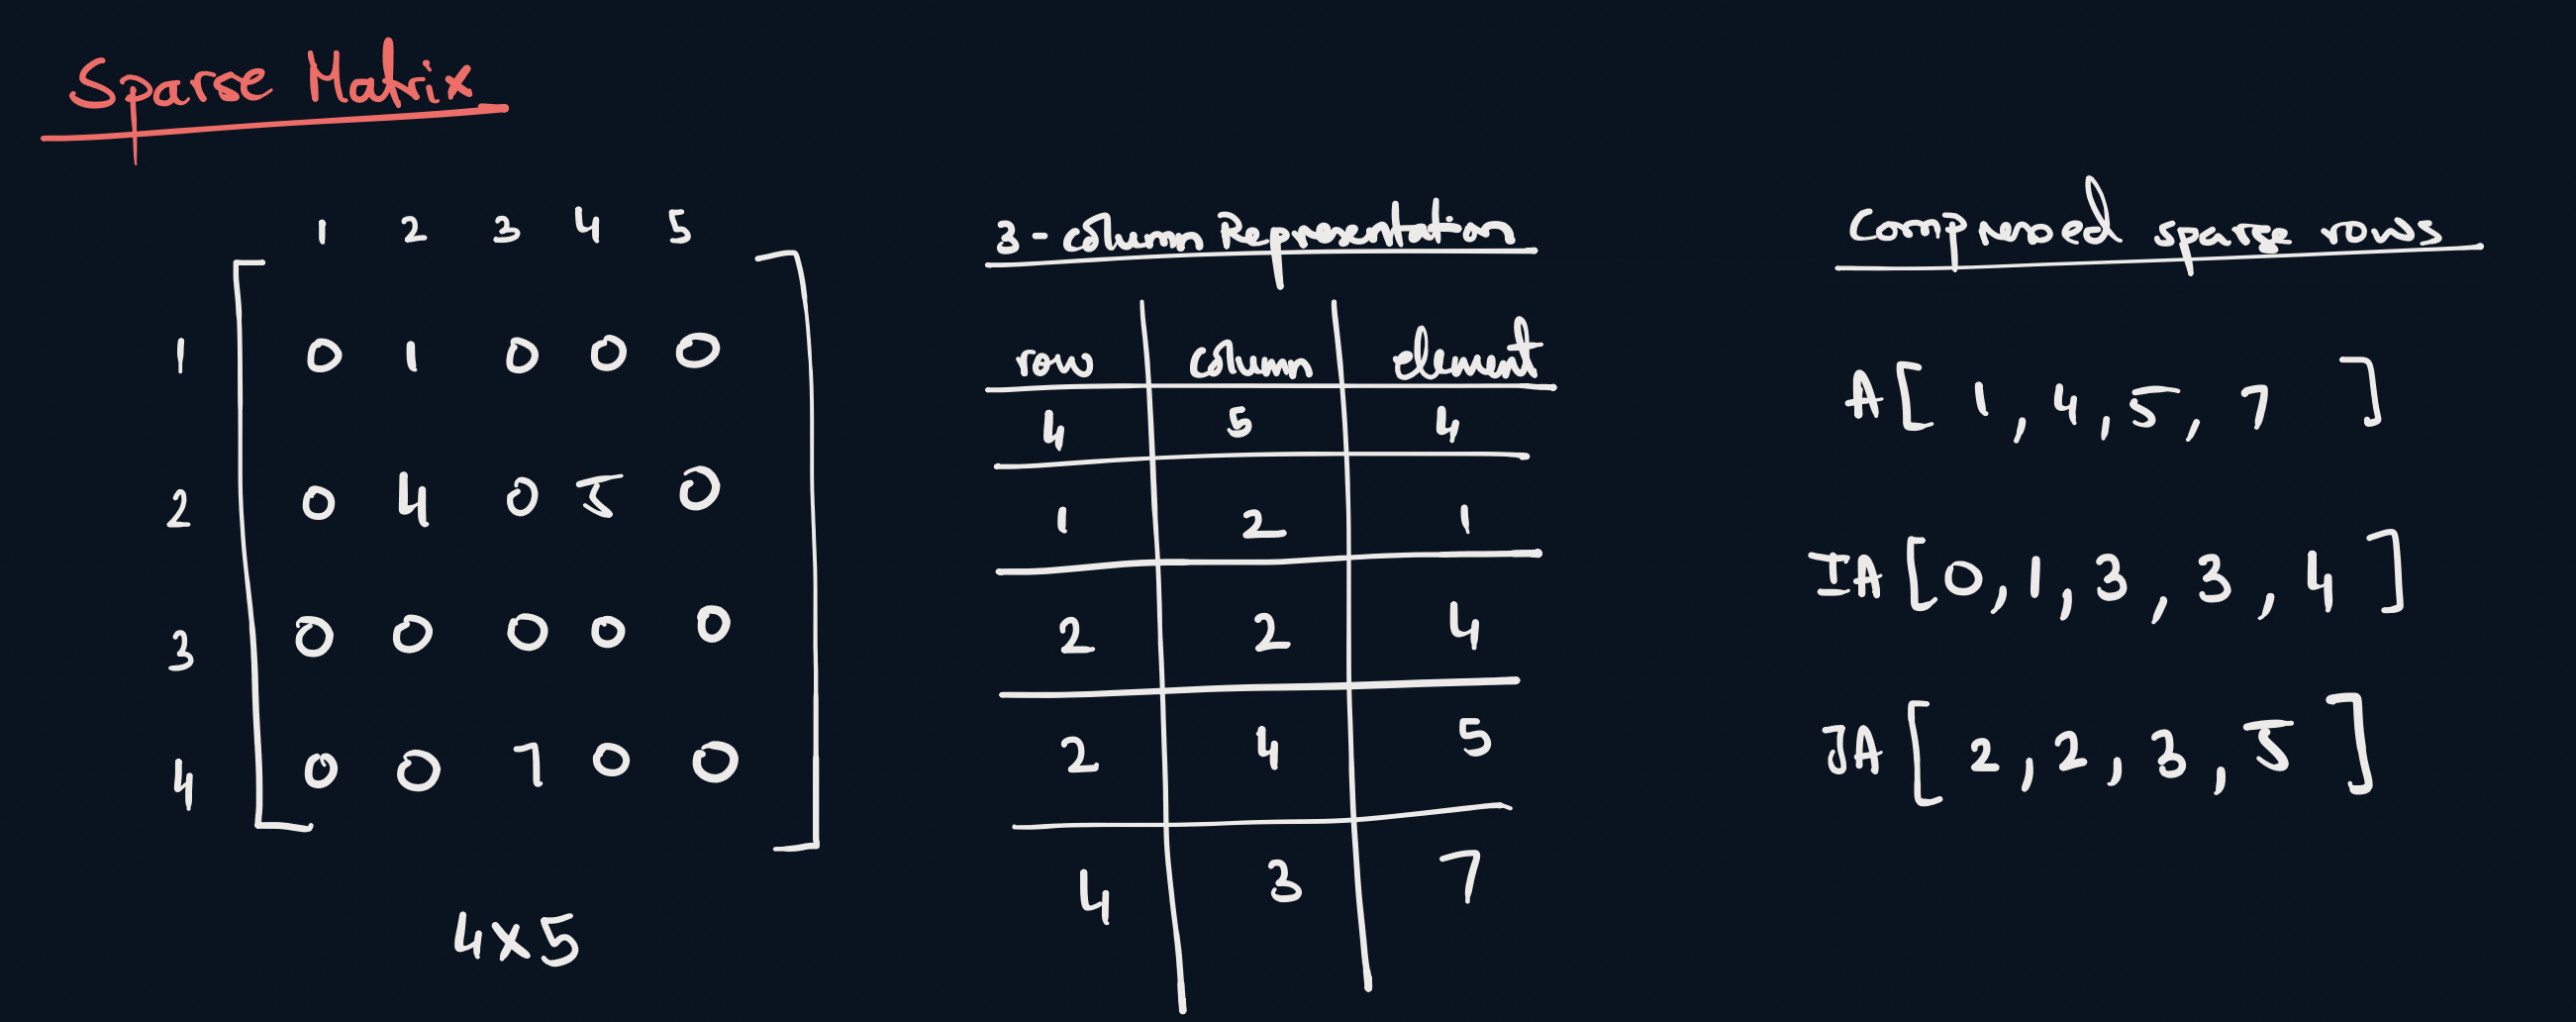 Sparse Matrix
1 2 3 4 5
1 0 1 0 0 0
2 0 4 0 5 0
3 0 0 0 0 0
4 0 0 7 0 0
4x5
3-column Representation
row column element
4 5 4
1 2 1
2 2 4
2 4 5
4 3 7
Compressed sparse rows
A[ 1, 4, 5, 7 ]
IA[0, 1, 3, 3, 4 ]
JA[ 2, 2, 3, 5 ]